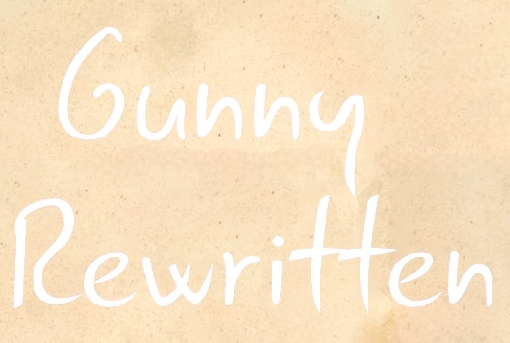 Gunny
Rewritten